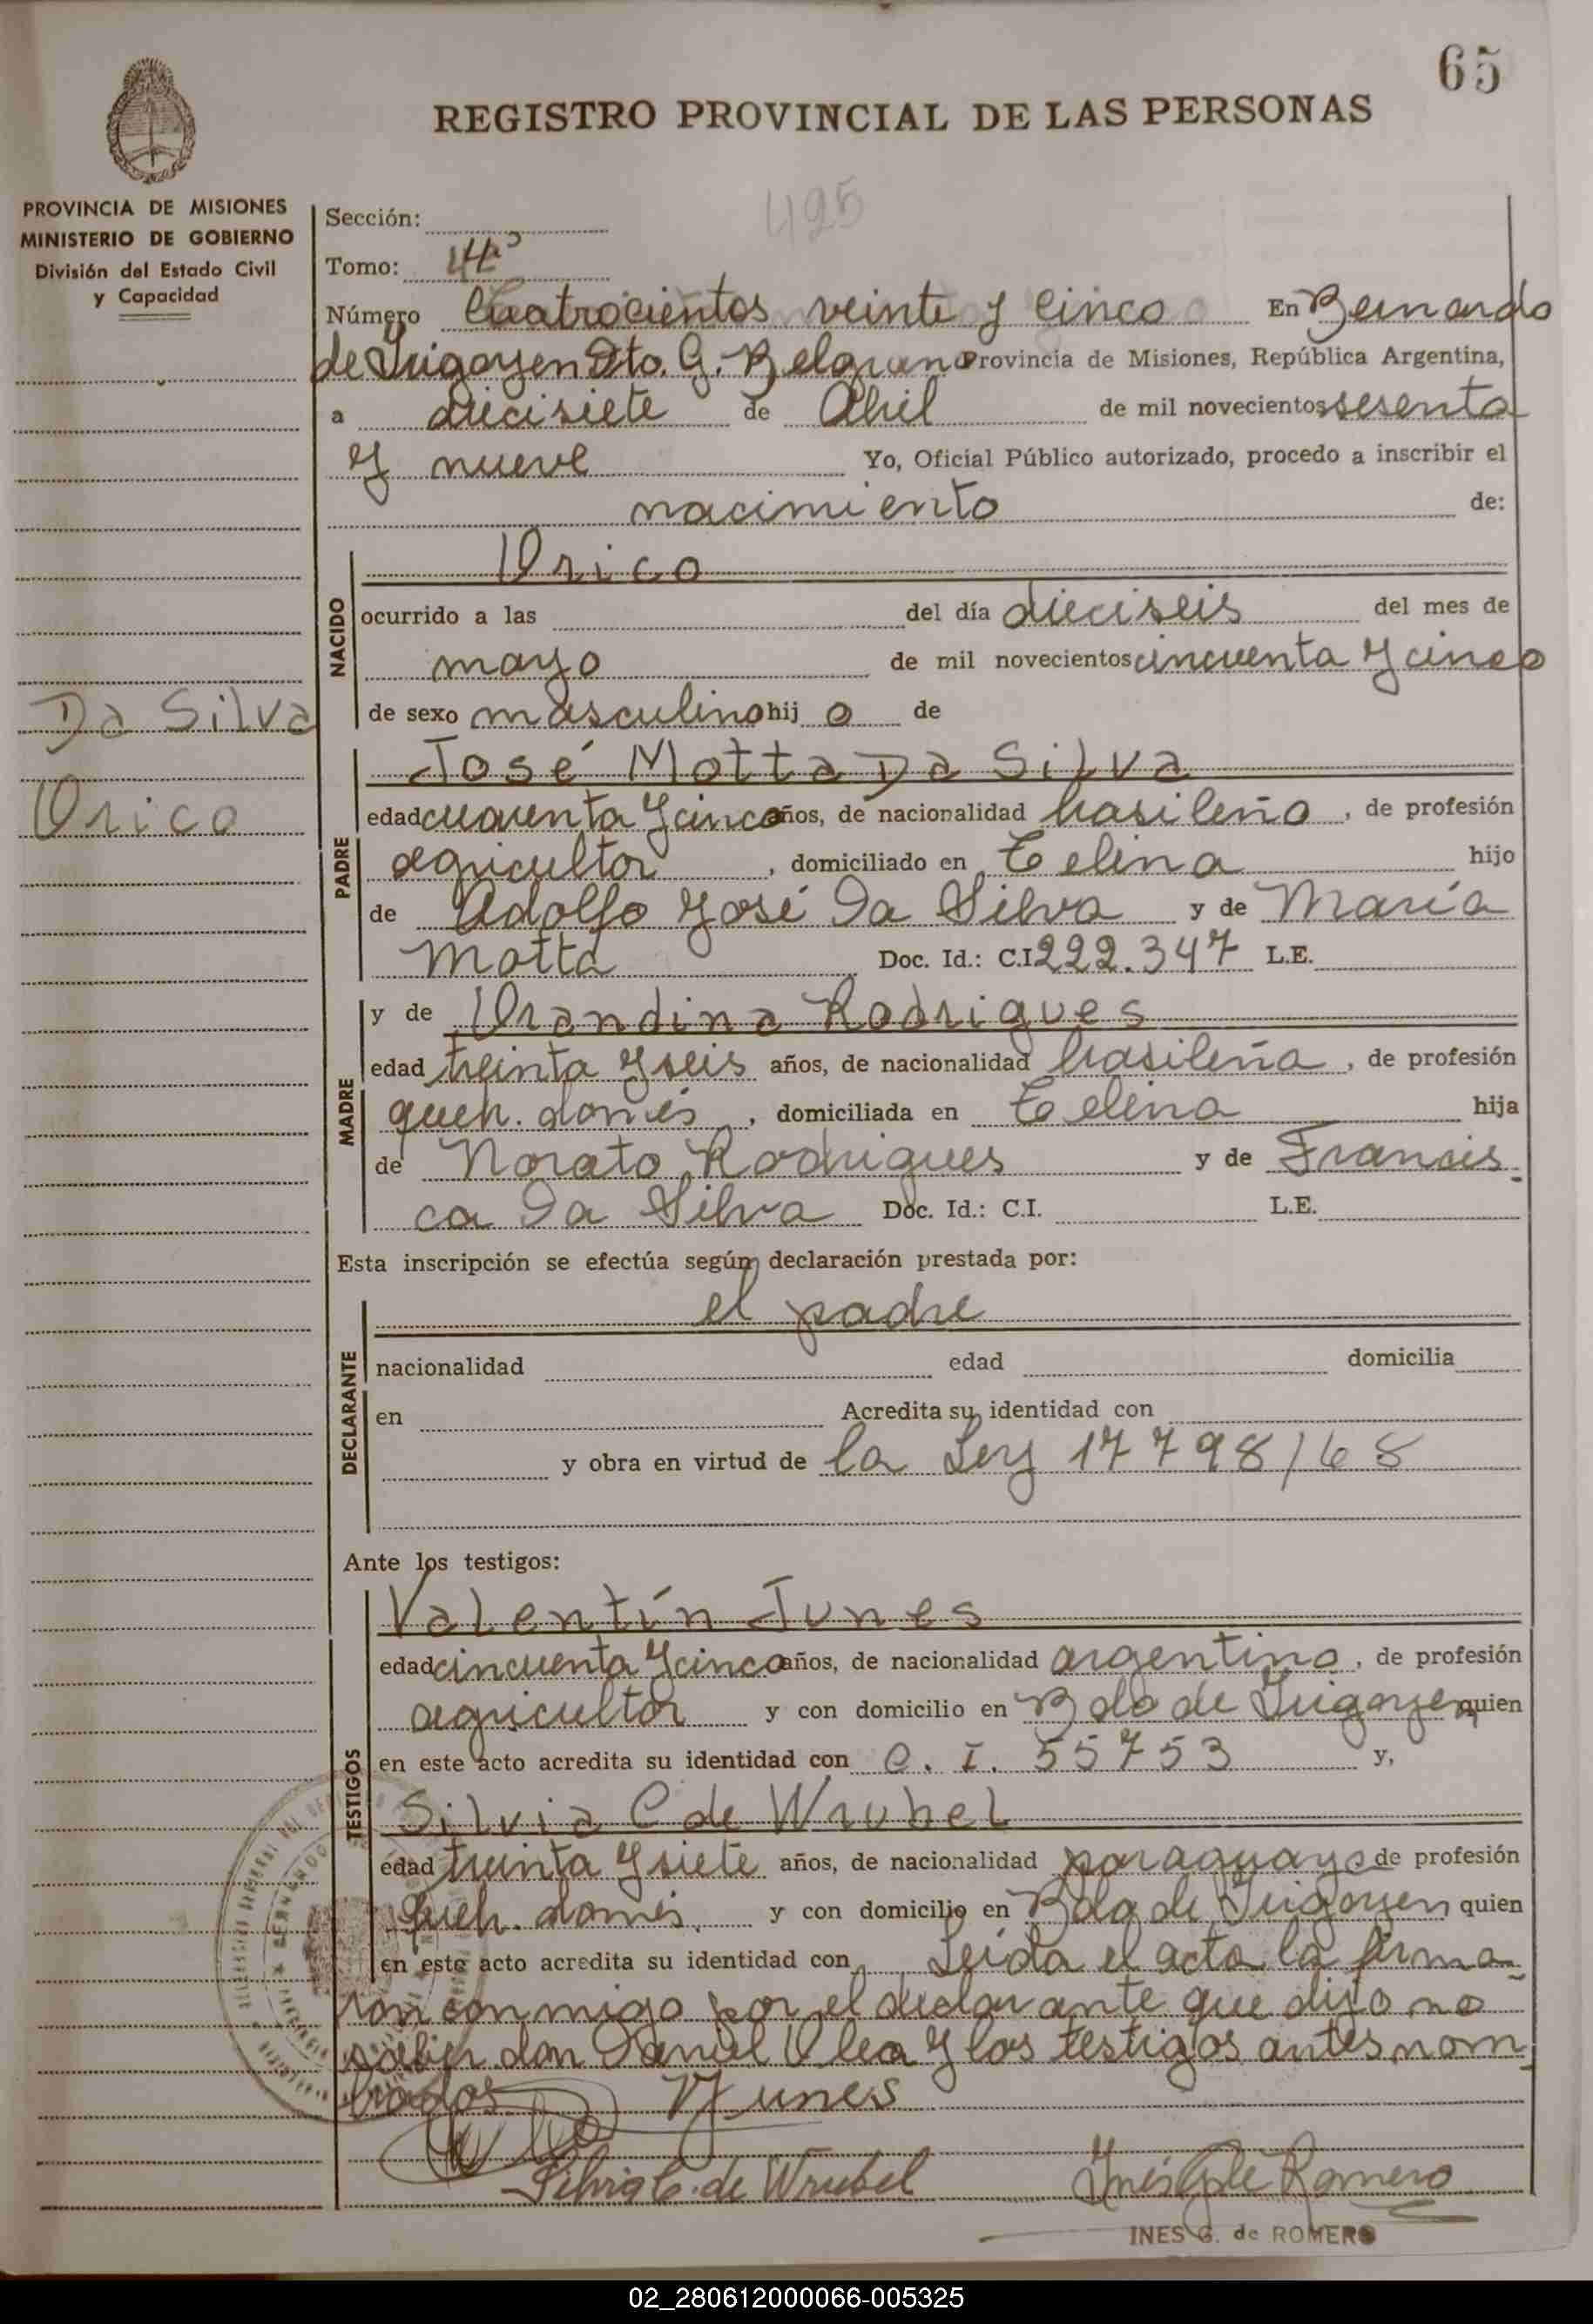 65
REGISTRO PROVINCIAL DE LAS PERSONAS
PROVINCIA DE MISIONES
MINISTERIO DE GOBIERNO
División del Estado Civil
y Capacidad
425
Sección:
Tomo: 4º
Número Cuatrocientos veinte y cinco En Bernardo
de Irigoyen Dto. G. Belgrano Provincia de Misiones, República Argentina,
a diecisiete de Abril de mil novecientos sesenta
y nueve Yo, Oficial Público autorizado, procedo a inscribir el
nacimiento de:
NACIDO
Orico
ocurrido a las del día dieciseis del mes de
mayo de mil novecientos cincuenta y cinco
de sexo masculino hij o de
Da Silva
Orico
PADRE
José Motta Da Silva
edad cuarenta y cinco años, de nacionalidad brasileño, de profesión
agricultor, domiciliado en hijo
de Adolfo José Da Silva y de María
Motta Doc. Id.: C.I. 222.347 L.E.
MADRE
y de Orandina Rodrigues
edad treinta y seis años, de nacionalidad brasileña, de profesión
queh. domés, domiciliada en hija
de Norato Rodrigues y de Francis
ca Da Silva Doc. Id.: C.I. L.E.
Esta inscripción se efectúa según declaración prestada por:
DECLARANTE
el padre
nacionalidad edad domicilia
en Acredita su identidad con
y obra en virtud de la Ley 17798/68
Ante los testigos:
TESTIGOS
Valentín Junes
edad cincuenta y cinco años, de nacionalidad argentino, de profesión
agricultor y con domicilio en Bdo de Irigoyen quien
en este acto acredita su identidad con C. I. 55753 y,
Silvia C de Wrubel
edad treinta y siete años, de nacionalidad paraguaya de profesión
queh. domés. y con domicilio en Bdo de Irigoyen quien
en este acto acredita su identidad con Leída el acta la firma-
ron conmigo por el declarante que dijo no
saber don Daniel Olea y los testigos antes nom
brados
Junes
Silvia C. de Wrubel Inés G de Romero
INES G. de ROMERO
02_280612000066-005325